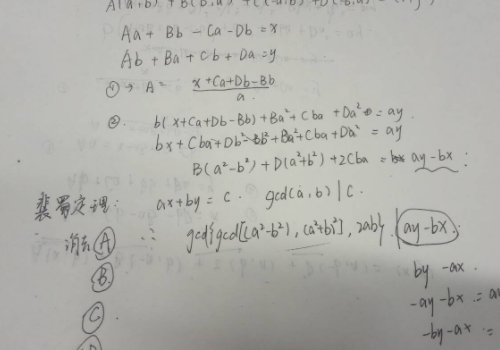 A(a,b) + B(b,a) + C(-a,b) + D(-b,a) =
Aa + Bb - Ca - Db = x
Ab + Ba + Cb + Da = y
① → A = (x + Ca + Db - Bb) / a
②. b(x+Ca+Db-Bb) + Ba² + Cba + Da² = ay
bx + Cba + Db² - Bb² + Ba² + Cba + Da² = ay
B(a²-b²) + D(a²+b²) + 2Cba = ay-bx
裴蜀定理: ax+by = c. gcd(a,b) | c.
消去 Ⓐ ∴ gcd{gcd[(a²-b²), (a²+b²)], 2ab} | ay-bx
Ⓑ by -ax
Ⓒ -ay-bx =
-by-ax =